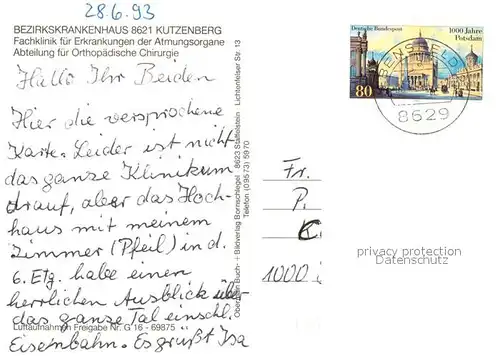 28.6.93
BEZIRKSKRANKENHAUS 8621 KUTZENBERG
Fachklinik für Erkrankungen der Atmungsorgane
Abteilung für Orthopädische Chirurgie
Hallo Ihr Beiden
Hier die versprochene
Karte. Leider ist nicht
das ganze Klinikum
drauf, aber das Hoch-
haus mit meinem
Zimmer (Pfeil) in d.
6. Etg. habe einen
herrlichen Ausblick über
das ganze Tal einschl.
Eisenbahn. Es grüßt Isa
Luftaufnahmen Freigabe Nr. G 16 - 69875
Buch- + Bildverlag Bornschlegel 8623 Staffelstein Lichtenfelser Str. 13
Telefon (09573) 5970
Deutsche Bundespost
1000 Jahre
Potsdam
80
8629
Fr.
P.
K.
1000
privacy protection
Datenschutz